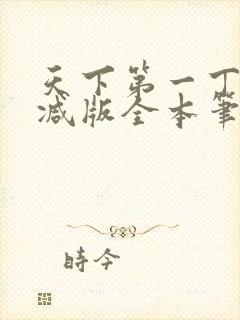 天下第一丁
减版全本筆
時今